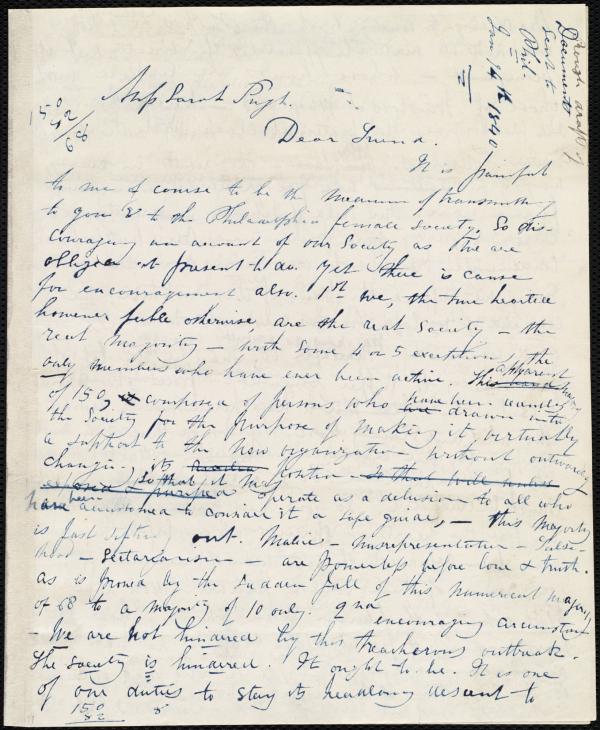 Rough draft of
Document
sent to
Phil.
Jan 14th 1840
150
82
/68
Miss Sarah Pugh.
Dear Friend.
It is painful
to me of course to be the medium of transmitting
to you & to the Philadelphia female society, so dis-
couraging an account of our Society as we are
obliged at present to do. Yet there is cause
for encouragement also. 1st we, the true hearted
however feeble otherwise, are the real Society – the
real majority – with some 4 or 5 exceptions, the
only members who have ever been active. This apparent majority
of 150, is composed of persons who have been drawn into
the Society for the purpose of making it virtually
a support to the new organization without outwardly
changing its position so that it may
operate as a delusion to all who
have been accustomed to consider it a safe guide, – this majority
is fast out. Malice – misrepresentation – false-
hood – Sectarianism – are powerless before love & truth.
as is proved by the sudden fall of this numerical majority
of 68 to a majority of 10 only. 2nd encouraging circumstance
– We are not hindered by this treacherous outbreak.
The Society is hindered. It ought to be. It is one
of our duties to stay its headlong descent to
150
82
8